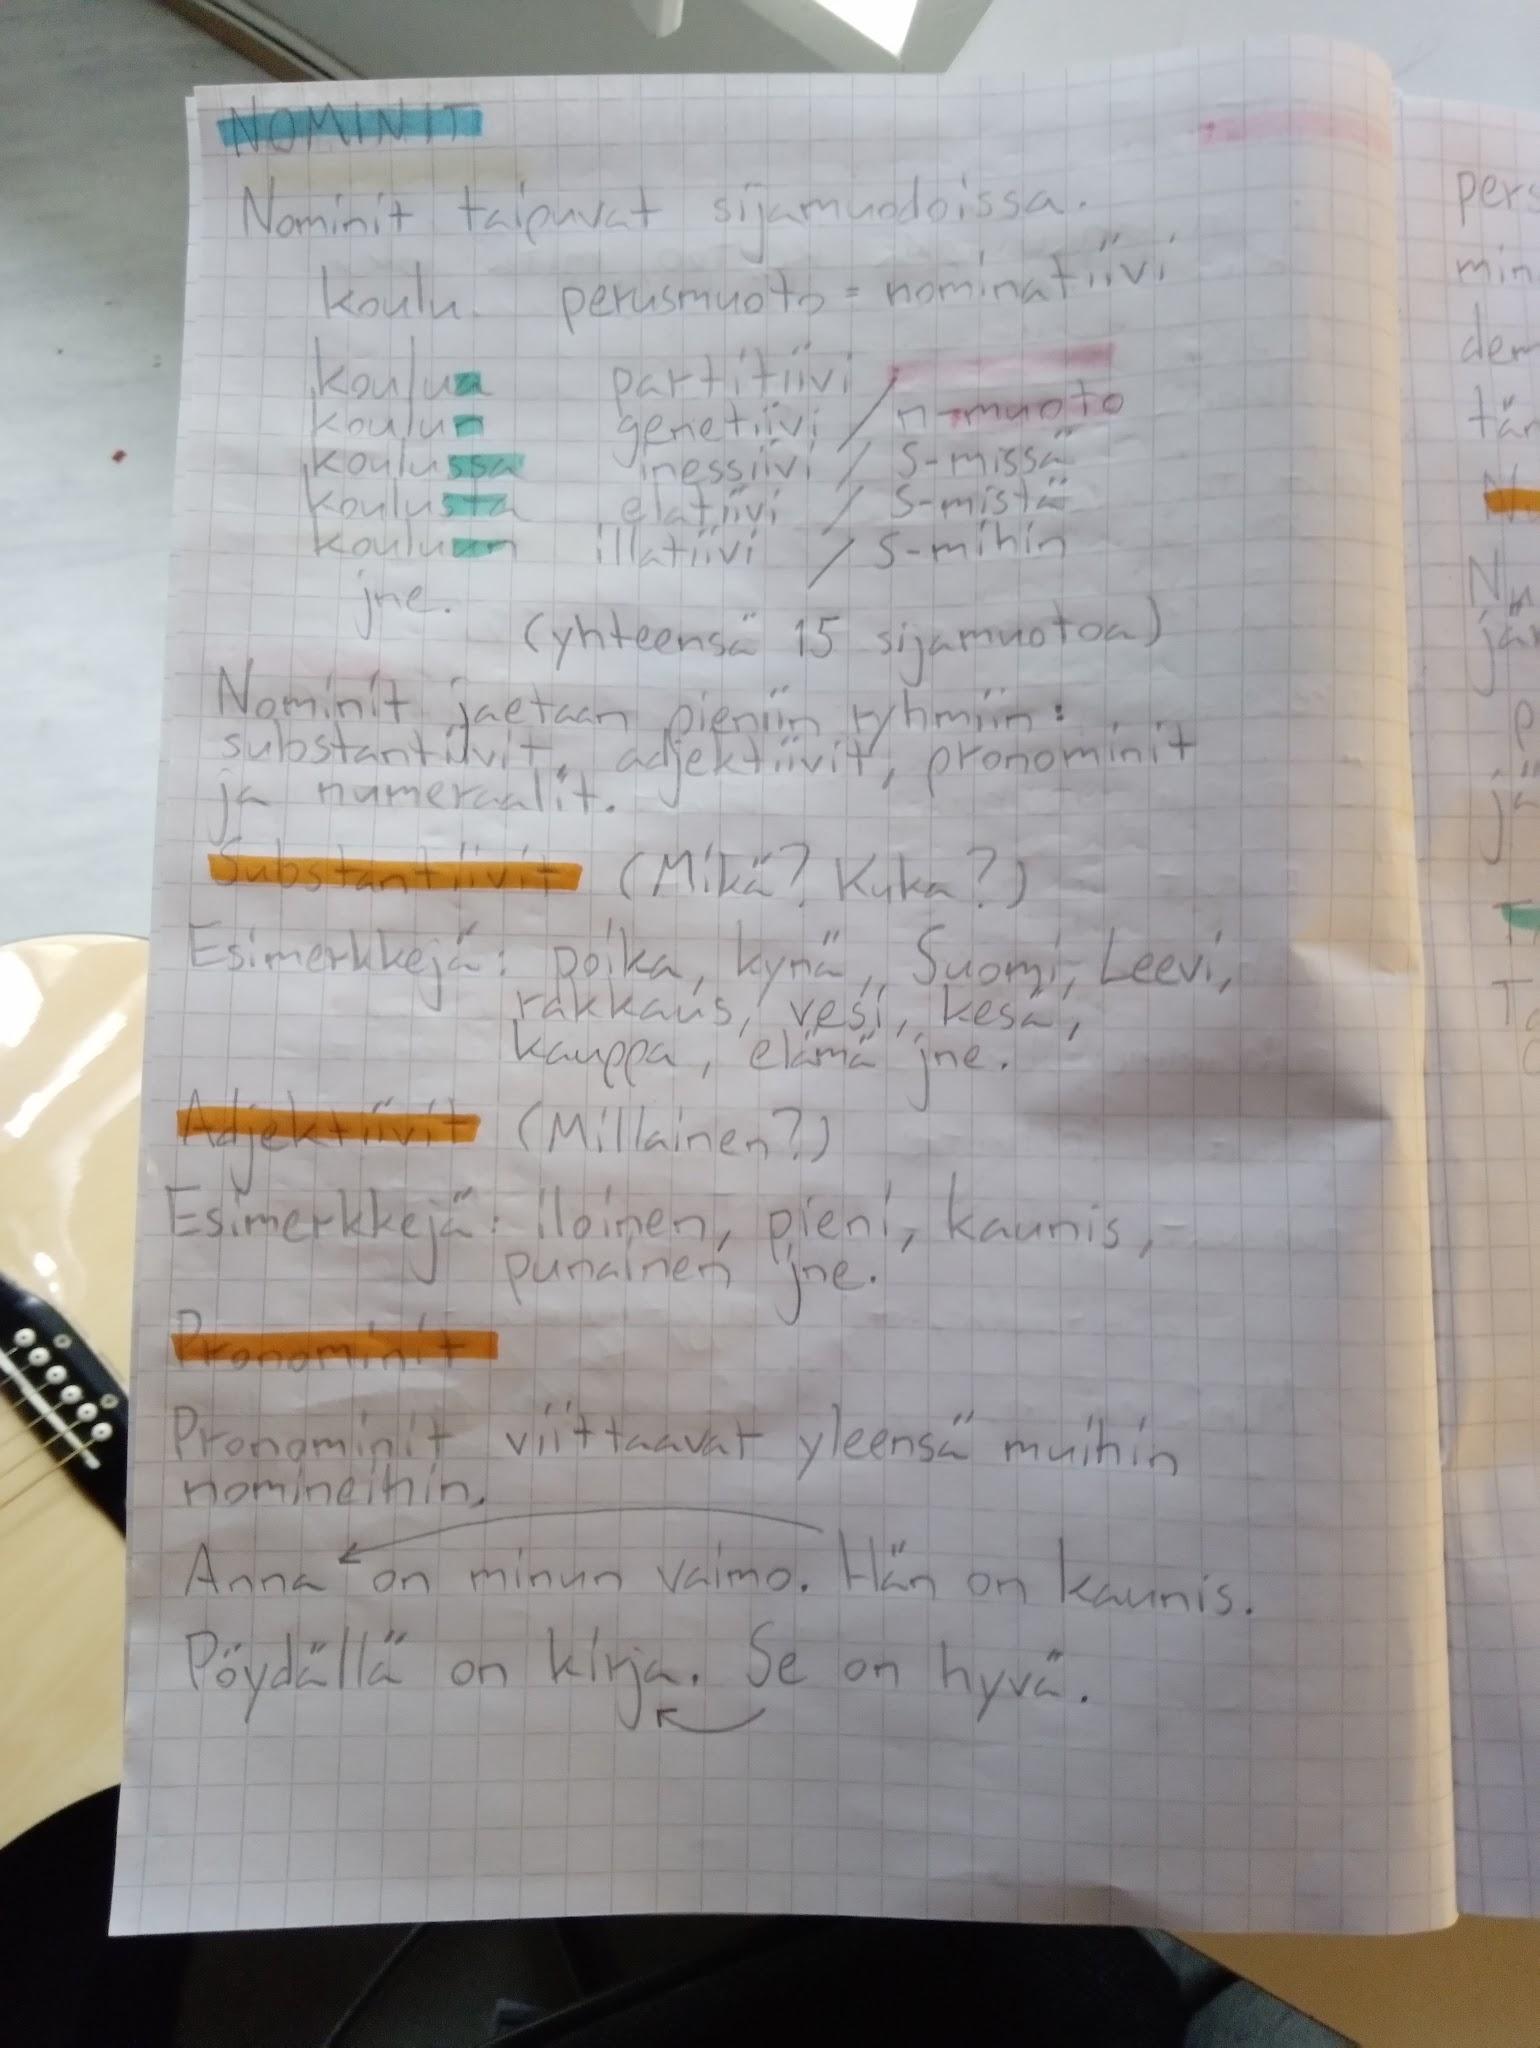 NOMINIT
Nominit taipuvat sijamuodoissa.
koulu perusmuoto = nominatiivi
koulua partitiivi
koulun genetiivi / n-muoto
koulussa inessiivi / S-missä
koulusta elatiivi / S-mistä
kouluun illatiivi / S-mihin
jne.
(yhteensä 15 sijamuotoa)
Nominit jaetaan pieniin ryhmiin:
substantiivit, adjektiivit, pronominit
ja numeraalit.
Substantiivit (Mikä? Kuka?)
Esimerkkejä: poika, kynä, Suomi, Leevi,
rakkaus, vesi, kesä,
kauppa, elämä jne.
Adjektiivit (Millainen?)
Esimerkkejä: iloinen, pieni, kaunis,
punainen jne.
Pronominit
Pronominit viittaavat yleensä muihin
nomineihin.
Anna on minun vaimo. Hän on kaunis.
Pöydällä on kirja. Se on hyvä.